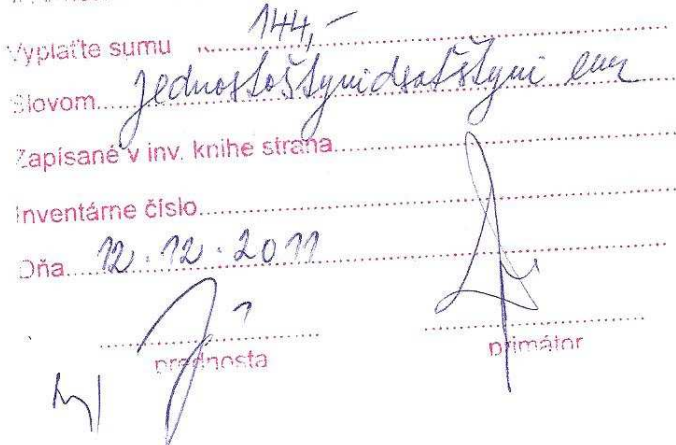 Vyplaťte sumu 144,-
Slovom jednostoštyridsaťštyri eur
Zapísané v inv. knihe strana
Inventárne číslo
Dňa 12.12.2011
prednosta primátor